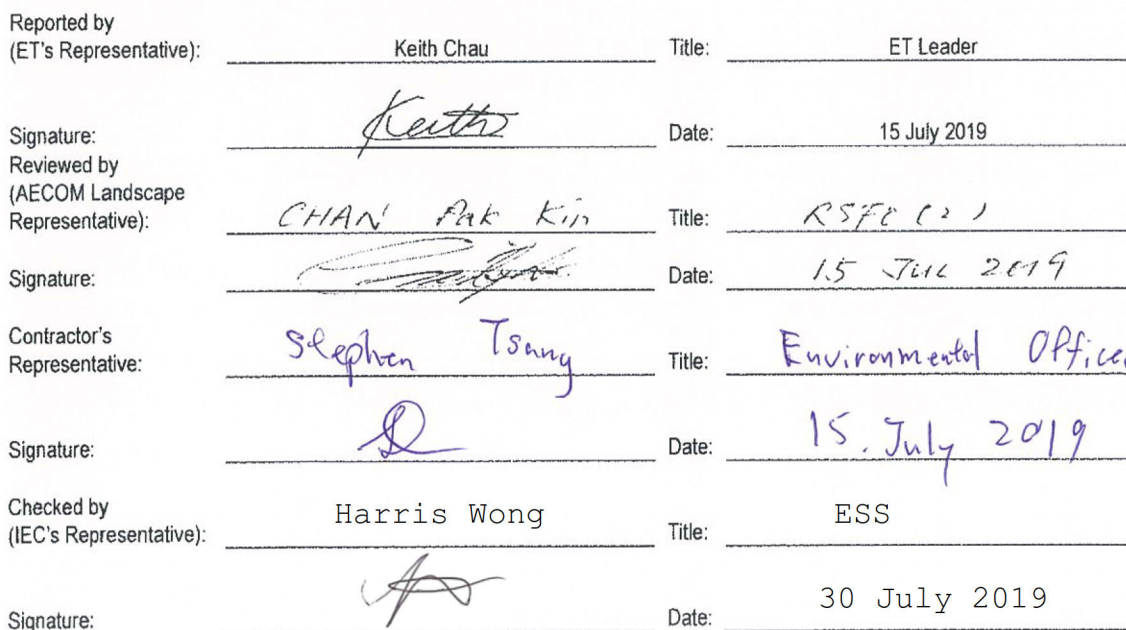 Reported by
(ET's Representative): Keith Chau Title: ET Leader
Signature: Keith Date: 15 July 2019
Reviewed by
(AECOM Landscape
Representative): CHAN Pak Kin Title:
Signature: Date: 15 JUL 2019
Contractor's
Representative: Stephen Tsang Title: Environmental Officer
Signature: Date: 15. July 2019
Checked by
(IEC's Representative): Harris Wong Title: ESS
Signature: Date: 30 July 2019